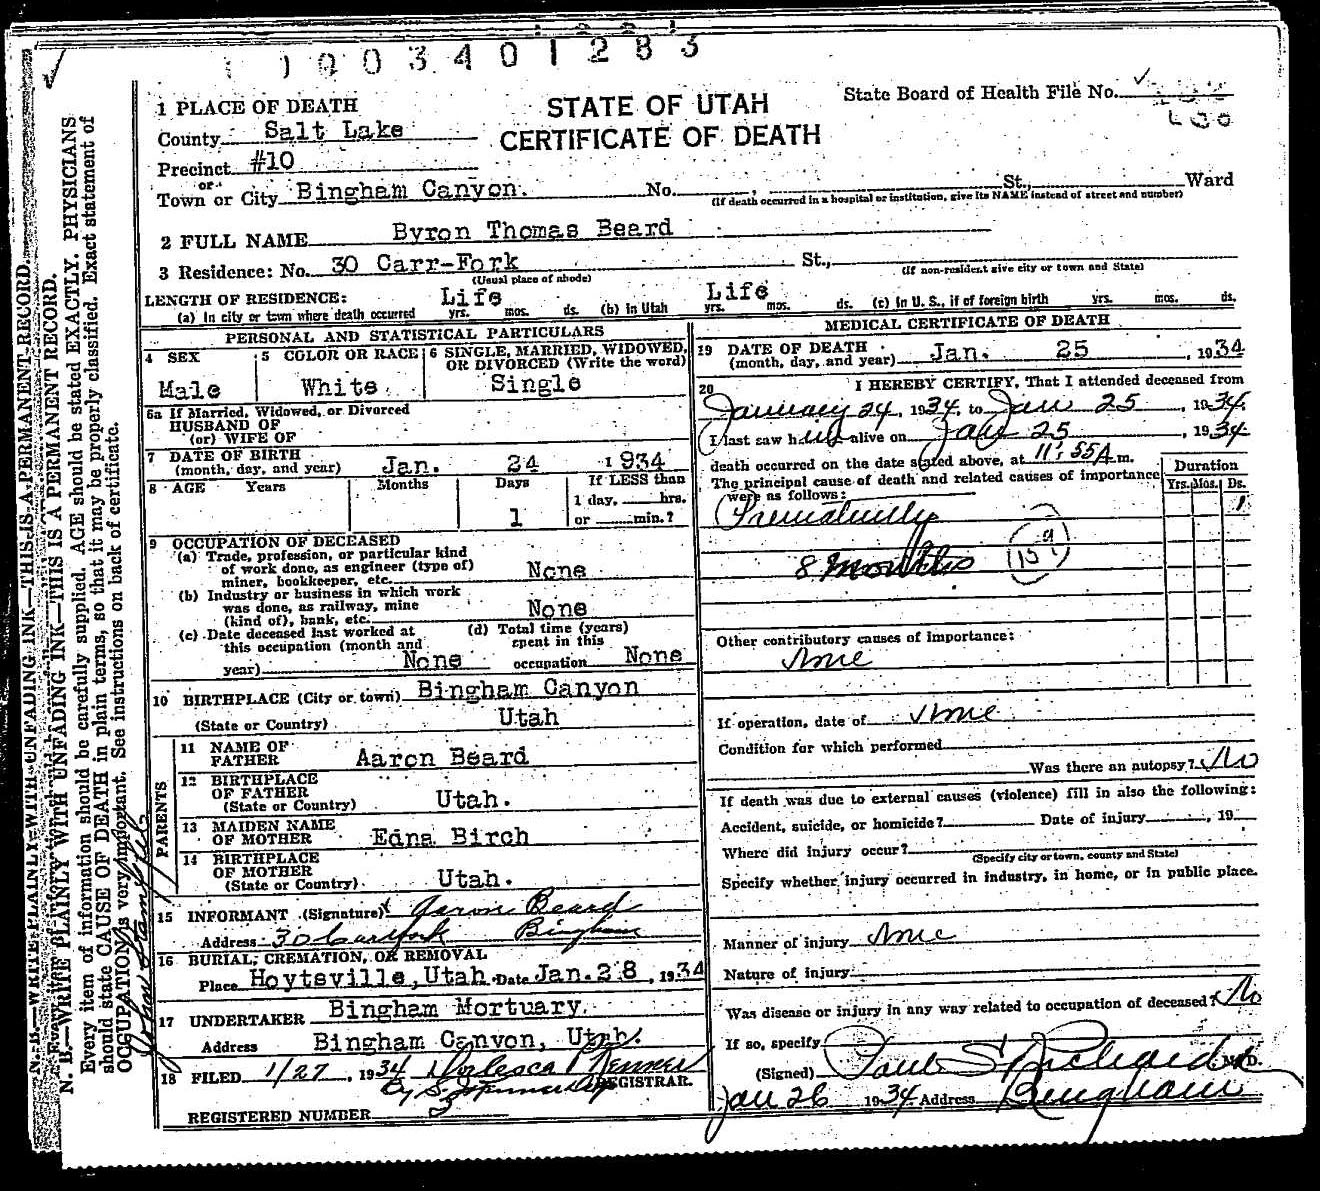 1003401283
1 PLACE OF DEATH
STATE OF UTAH
CERTIFICATE OF DEATH
State Board of Health File No.
County Salt Lake
Precinct #10
or
Town or City Bingham Canyon. No. , St., Ward
(If death occurred in a hospital or institution, give its NAME instead of street and number)
2 FULL NAME Byron Thomas Beard
3 Residence: No. 30 Carr-Fork St.,
(Usual place of abode) (If non-resident give city or town and State)
LENGTH OF RESIDENCE:
(a) In city or town where death occurred Life yrs. mos. ds. (b) in Utah Life yrs. mos. ds. (c) in U. S., if of foreign birth yrs. mos. ds.
PERSONAL AND STATISTICAL PARTICULARS
4 SEX
Male
5 COLOR OR RACE
White
6 SINGLE, MARRIED, WIDOWED,
OR DIVORCED (Write the word)
Single
6a If Married, Widowed, or Divorced
HUSBAND OF
(or) WIFE OF
7 DATE OF BIRTH
(month, day, and year) Jan. 24 1934
8 AGE Years Months Days
1
If LESS than
1 day, hrs.
or min.?
9 OCCUPATION OF DECEASED
(a) Trade, profession, or particular kind
of work done, as engineer (type of)
miner, bookkeeper, etc. None
(b) Industry or business in which work
was done, as railway, mine
(kind of), bank, etc. None
(c) Date deceased last worked at
this occupation (month and
year) None
(d) Total time (years)
spent in this
occupation None
10 BIRTHPLACE (City or town) Bingham Canyon
(State or Country) Utah
PARENTS
11 NAME OF
FATHER Aaron Beard
12 BIRTHPLACE
OF FATHER
(State or Country) Utah.
13 MAIDEN NAME
OF MOTHER Edna Birch
14 BIRTHPLACE
OF MOTHER
(State or Country) Utah.
15 INFORMANT (Signature) Aaron Beard
Address 30 Carrfork Bingham
16 BURIAL, CREMATION, OR REMOVAL
Place Hoytsville, Utah Date Jan. 28, 1934
17 UNDERTAKER Bingham Mortuary.
Address Bingham Canyon, Utah.
18 FILED 1/27, 1934
REGISTRAR.
REGISTERED NUMBER 3
MEDICAL CERTIFICATE OF DEATH
19 DATE OF DEATH
(month, day, and year) Jan. 25, 1934
20 I HEREBY CERTIFY, That I attended deceased from
January 24, 1934, to Jan 25, 1934.
I last saw him alive on Jan 25, 1934
death occurred on the date stated above, at 11:55 A m.
The principal cause of death and related causes of importance
were as follows:
Duration
Yrs. Mos. Ds.
1
Prematurity
8 months
Other contributory causes of importance:
None
If operation, date of None
Condition for which performed
Was there an autopsy? No
If death was due to external causes (violence) fill in also the following:
Accident, suicide, or homicide? Date of injury , 19
Where did injury occur?
(Specify city or town, county and State)
Specify whether injury occurred in industry, in home, or in public place.
Manner of injury None
Nature of injury
Was disease or injury in any way related to occupation of deceased? No
If so, specify
(Signed) Paul S Richards M. D.
Jan 26 1934 Address Bingham
N. B.—WRITE PLAINLY WITH UNFADING INK—THIS IS A PERMANENT RECORD.
Every item of information should be carefully supplied. AGE should be stated EXACTLY. PHYSICIANS
should state CAUSE OF DEATH in plain terms, so that it may be properly classified. Exact statement of
OCCUPATION is very important. See instructions on back of certificate.